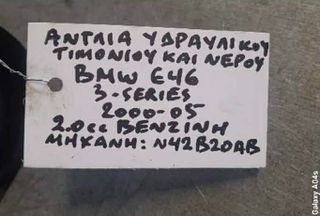 ΑΝΤΛΙΑ ΥΔΡΑΥΛΙΚΟΥ
ΤΙΜΟΝΙΟΥ ΚΑΙ ΝΕΡΟΥ
BMW E46
3-SERIES
2000-05
2.0cc ΒΕΝΖΙΝΗ
ΜΗΧΑΝΗ: N42B20AB
Galaxy A04s